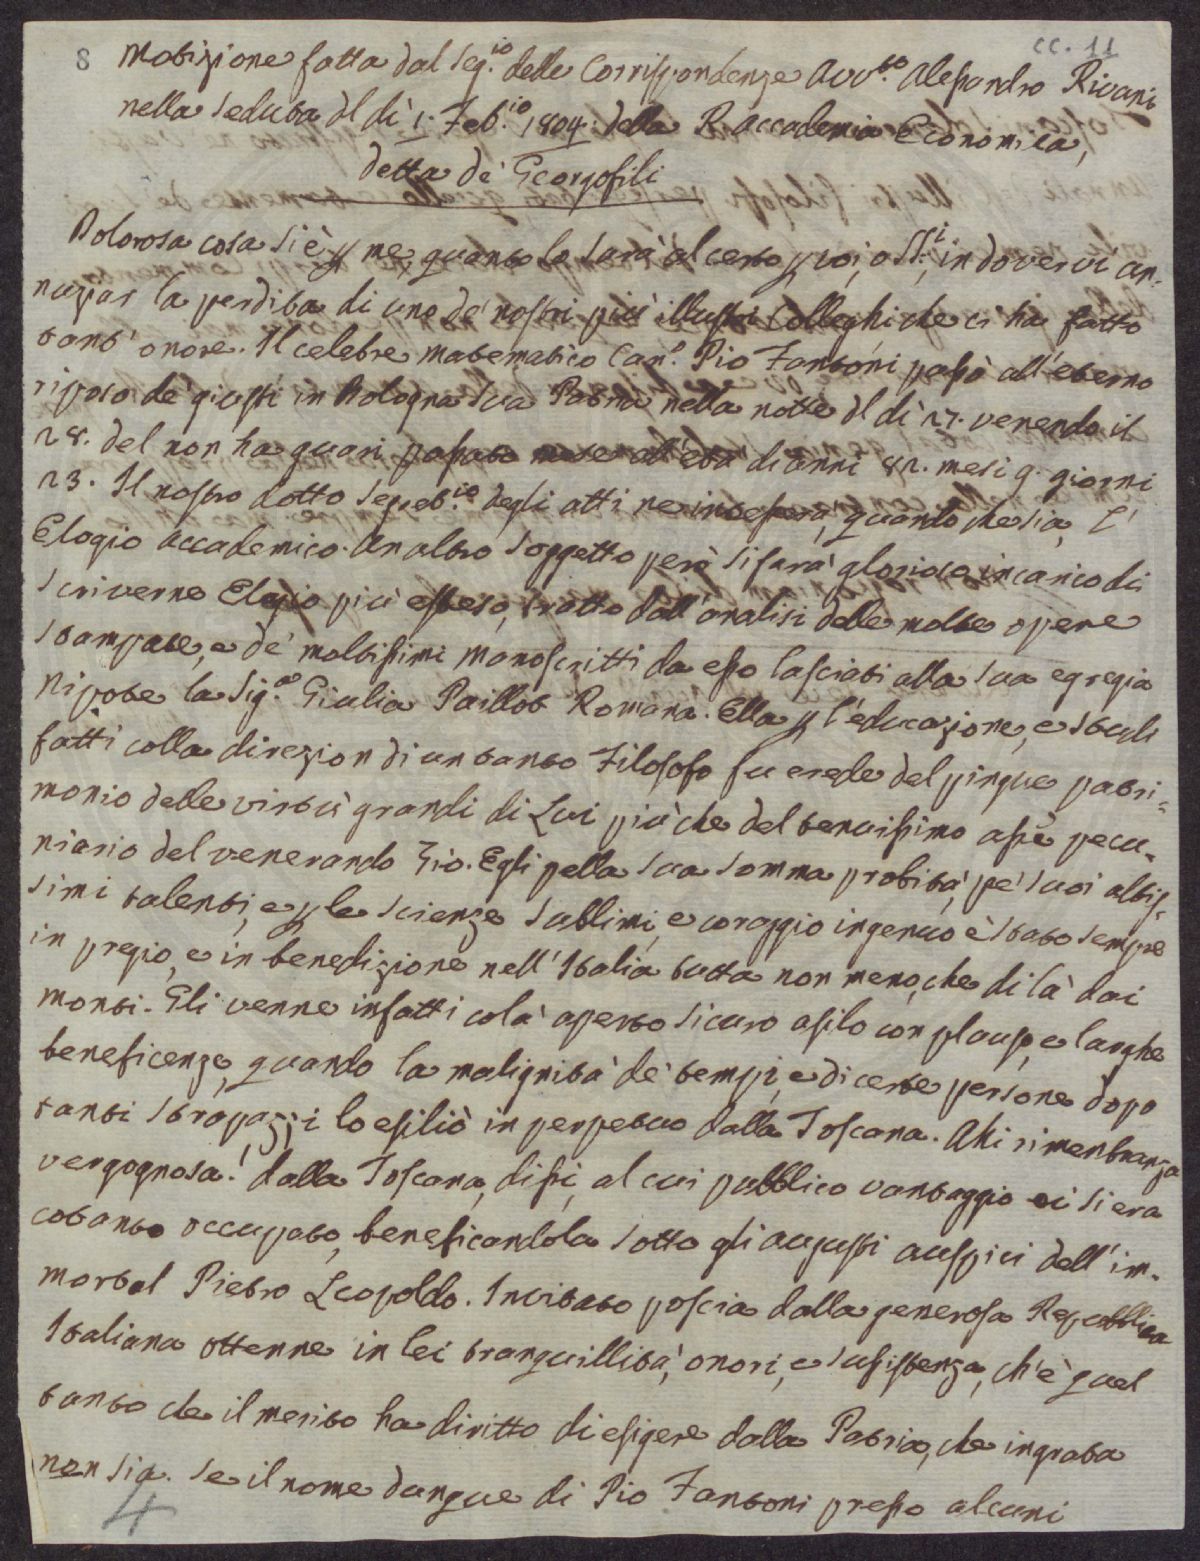 8
cc. 11
Motizione fatta dal Seg.io delle Corrispondenze Avv.to Alessandro Rivani
nella Seduta del dì 1. Feb.io 1804. della R. Accademia Economica,
detta de' Georgofili
Dolorosa cosa si è per me, quanto lo sarà al certo per voi, o SS.i, in dovervi an-
nuziar la perdita di uno de' nostri più illustri Colleghi che ci ha fatto
tant' onore. Il celebre matematico Can.o Pio Fantoni passò all'eterno
riposo de' giusti in Bologna Sua Patria nella notte del dì 27. venendo il
28. del non ha guari passato mese all'età di anni 82. mesi 9. giorni
23. Il nostro dotto Segret.io degli atti ne intesserà, quando che sia, l'
Elogio accademico. Un altro soggetto però si farà glorioso incarico di
scriverne Elogio più esteso, tratto dall'analisi delle molte opere
stampate, e de' moltissimi manoscritti da esso lasciati alla sua egregia
Nipote la Sig.a Giulia Paillot Romana. Ella per l'educazione, e studi
fatti colla direzion di un tanto Filosofo fu erede del pingue patri-
monio delle virtù grandi di Lui più che del tenuissimo asse pecu-
niario del venerando Zio. Egli pella sua somma probità, pe' suoi altis-
simi talenti, e per le scienze sublimi, e coraggio ingenuo è stato sempre
in pregio, e in benedizione nell'Italia tutta non meno, che di là dai
monti. Gli venne infatti colà aperto sicuro asilo con plauso, e larghe
beneficenze, quando la malignità de' tempi, e di certe persone dopo
tanti strapazzi lo esiliò in perpetuo dalla Toscana. Ahi rimembranza
vergognosa! dalla Toscana, dissi, al cui pubblico vantaggio ei si era
cotanto occupato, beneficandola sotto gli augusti auspici dell'im-
mortal Pietro Leopoldo. Invitato poscia dalla generosa Repubblica
Italiana ottenne in lei tranquillità, onori, e sussistenza, ch'è quel
tanto che il merito ha diritto di esigere dalla Patria, che ingrata
non sia. Se il nome dunque di Pio Fantoni presso alcuni
4